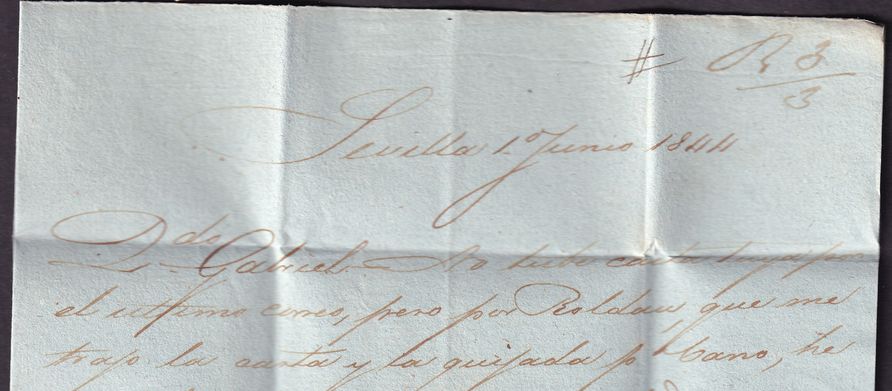 # R 3/3
Sevilla 1º Junio 1844
Qdo Gabriel = No tube carta tuya por
el ultimo correo, pero por Roldan, que me
trajo la carta y la quijada pª Cano, he